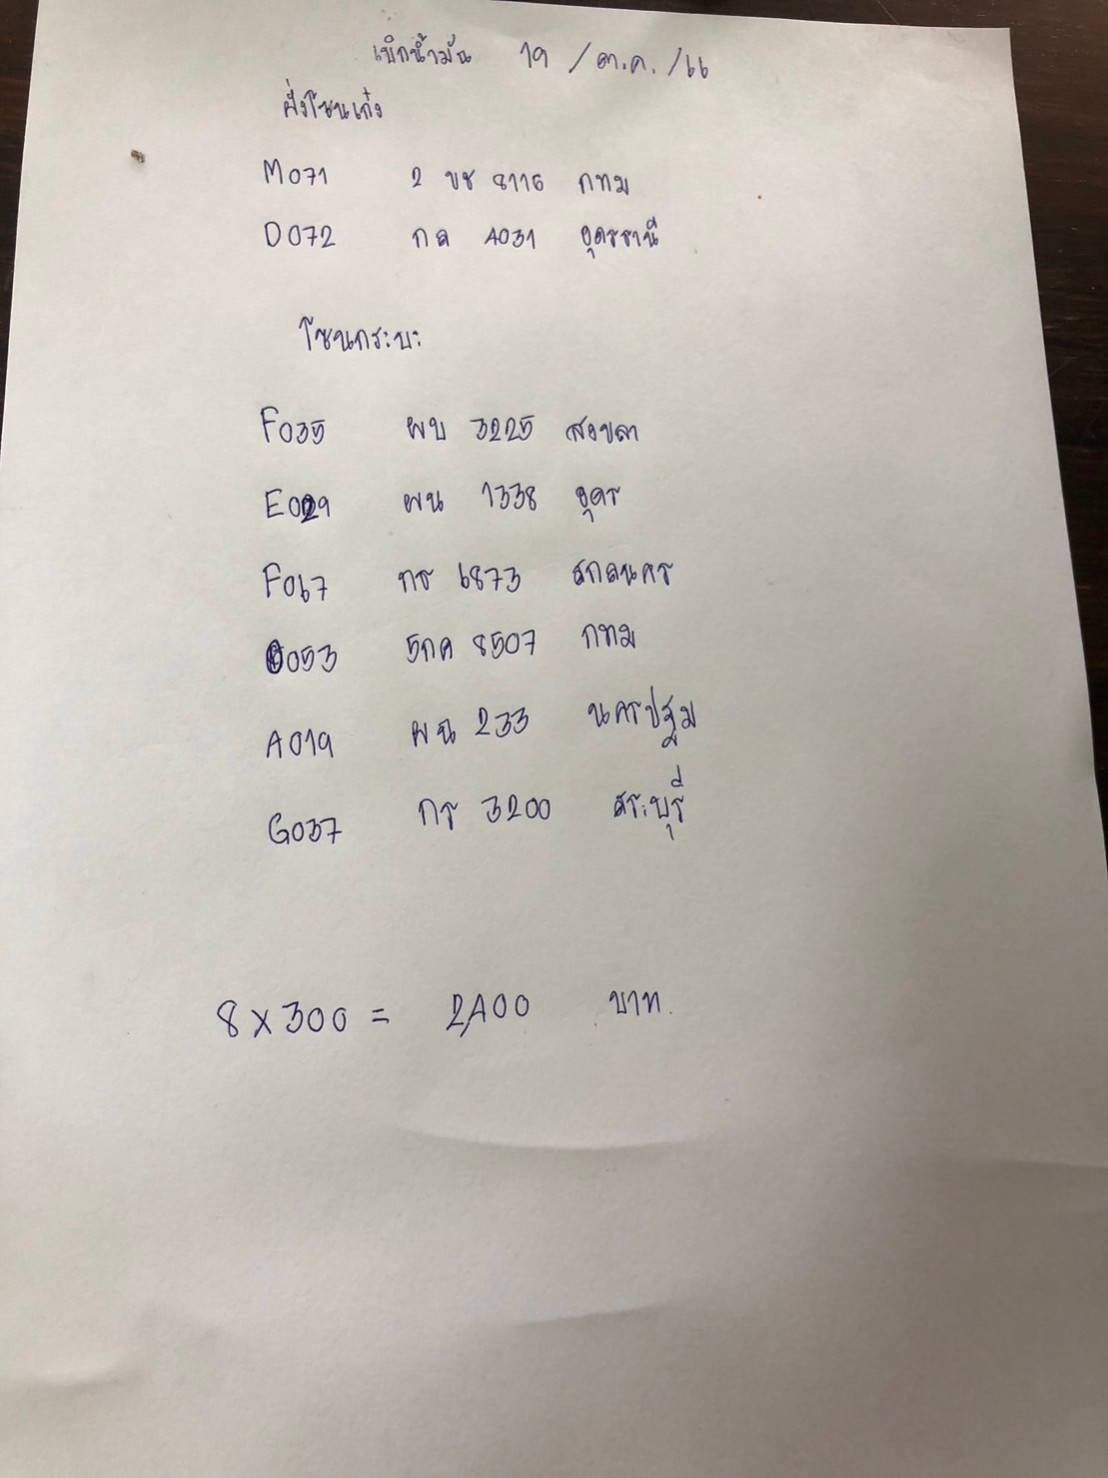 เบิกน้ำมัน 19 / ต.ค. /66
ฝั่งโซนเก๋ง
M071 2 ขช 8116 กทม
D072 กล 4031 อุดรธานี
โซนกระบะ
F035 ผบ 3225 สงขลา
E029 ผน 1338 อุดร
F067 กธ 6873 สกลนคร
053 5กค 8507 กทม
A019 ผฉ 233 นครปฐม
G037 กร 3200 สระบุรี
8 x 300 = 2,400 บาท.